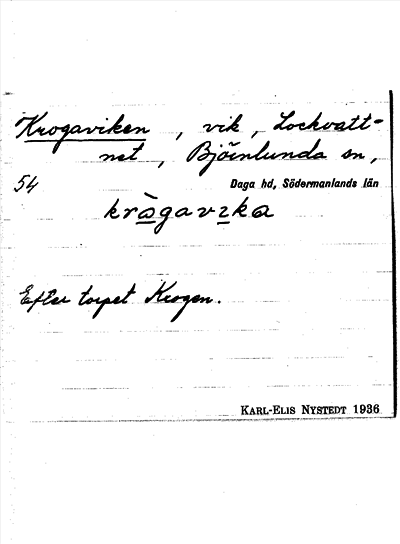 Krogaviken, vik, Lockvatt-
net, Björnlunda sn,
54 Daga hd, Södermanlands län
krògavika
Efter torpet Krogen.
KARL-ELIS NYSTEDT 1936